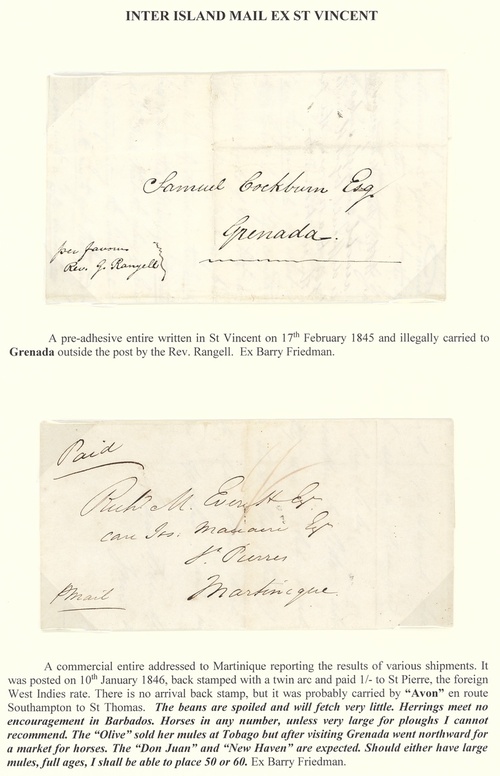 INTER ISLAND MAIL EX ST VINCENT
Samuel Cockburn Esq
Grenada.
per favour
Rev. G. Rangell
A pre-adhesive entire written in St Vincent on 17th February 1845 and illegally carried to
Grenada outside the post by the Rev. Rangell. Ex Barry Friedman.
Paid
Richd M. Everett Esq
care Jos. Esq
St. Pierres
Martinique.
P Mail
A commercial entire addressed to Martinique reporting the results of various shipments. It
was posted on 10th January 1846, back stamped with a twin arc and paid 1/- to St Pierre, the foreign
West Indies rate. There is no arrival back stamp, but it was probably carried by “Avon” en route
Southampton to St Thomas. The beans are spoiled and will fetch very little. Herrings meet no
encouragement in Barbados. Horses in any number, unless very large for ploughs I cannot
recommend. The “Olive” sold her mules at Tobago but after visiting Grenada went northward for
a market for horses. The “Don Juan” and “New Haven” are expected. Should either have large
mules, full ages, I shall be able to place 50 or 60. Ex Barry Friedman.